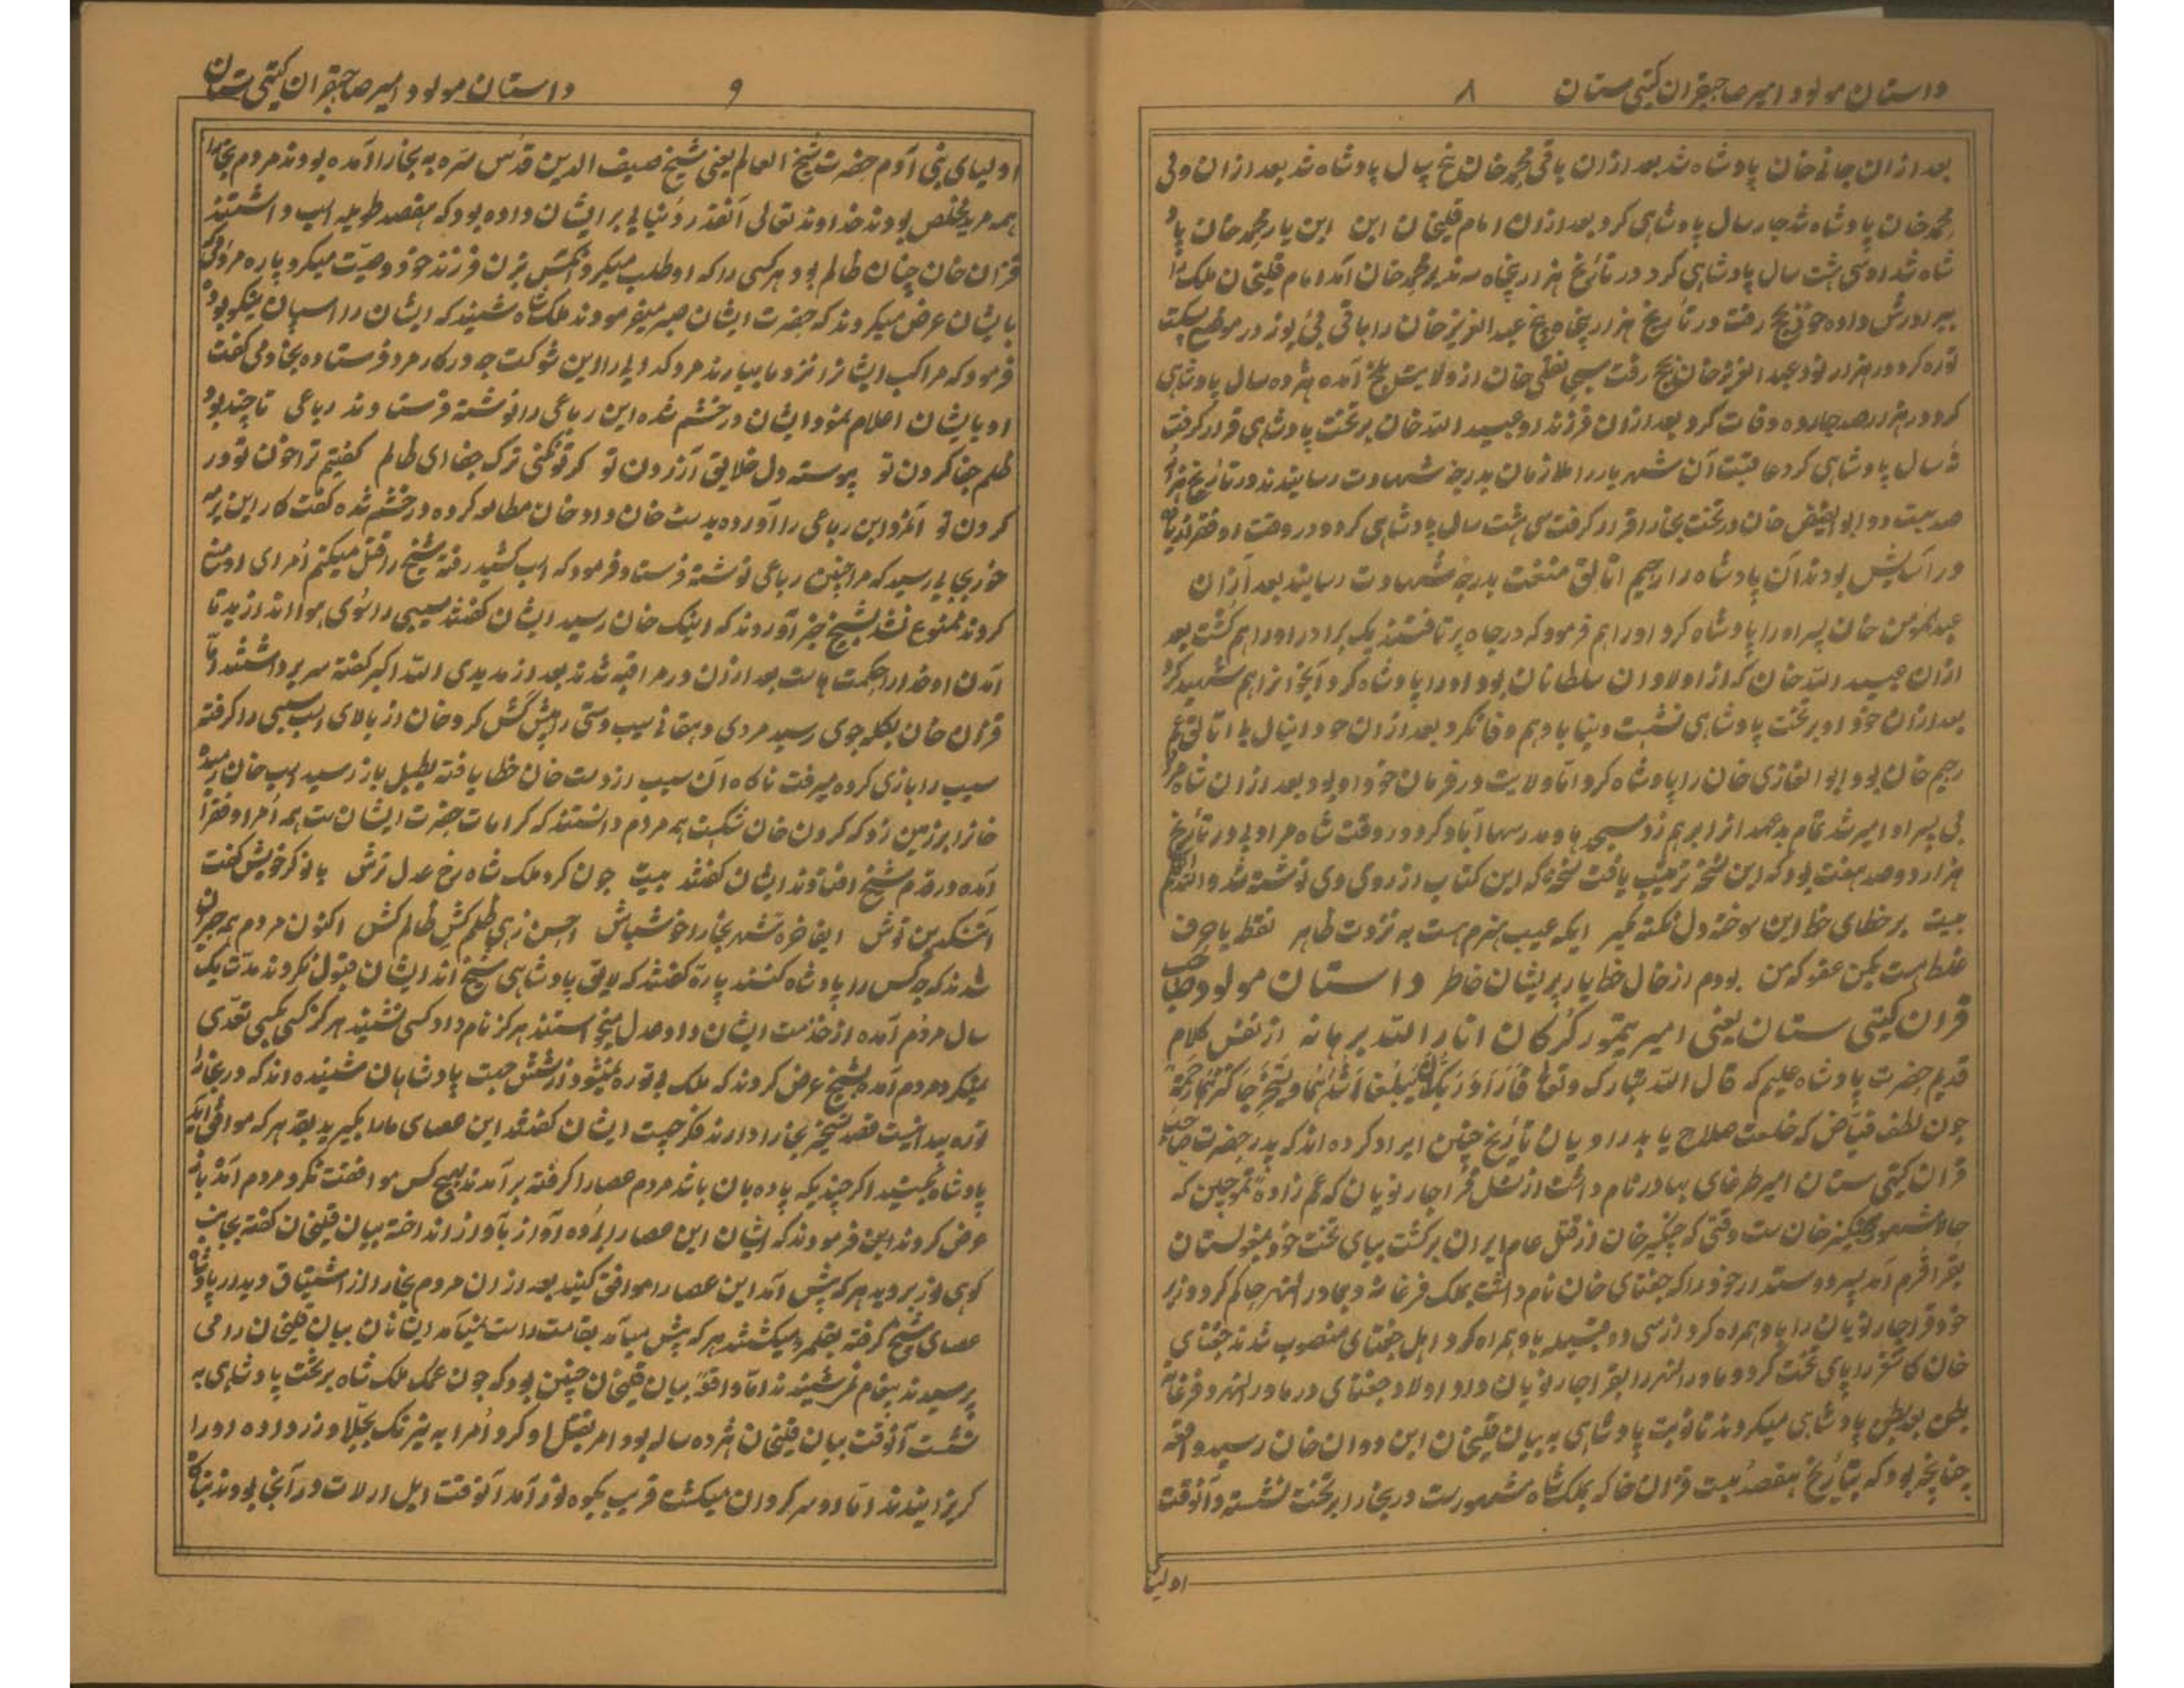 داستان مولود امیر صاحبقران کیتی ستان
۸
بعد ازان جانے خان پادشاه شد بعد ازان باقی محمد خان پنج سال پادشاه شد بعد ازان ولی
محمد خان پادشاه شد چار سال پادشاهی کرد بعد ازان امام قلیخان ابن این یار محمد خان پاد
شاه شد او سی هشت سال پادشاهی کرد در تاریخ هزار پنجاه سه ندیر محمد خان آمد امام قلیخان ملک را
بیرادرش داده خود بحج رفت در تاریخ هزار پنجاه پنج عبد العزیز خان را باقی بی یوز در موضع
توره کرد در هزار نود عبد العزیز خان بحج رفت سبحانقلی خان از ولایت بلخ آمده هژده سال پادشاهی
کرد در هزار صد چارده وفات کرد بعد ازان فرزند او عبید الله خان بر تخت پادشاهی قرار کرفت
نه سال پادشاهی کرد عاقبت آن شهریار را ملازمان بدرجه شهادت رسانیدند در تاریخ هزار
صد بیست دو ابو الفیض خان در تخت بخارا قرار کرفت سی هشت سال پادشاهی کرد در وقت او فقرا
در آسایش بودند آن پادشاه را رحیم اتالیق منغت بدرجه شهادت رسانید بعد ازان
عبد المؤمن خان پسر او را پادشاه کرد او را هم فرمود که در چاه پرتافتند یک برادر او را هم کشت بعد
ازان عبید الله خان که از اولادان سلطانان بود او را پادشاه کرد آنخانرا هم شهید کرد
بعد ازان خود او بر تخت پادشاهی نشست دنیا با او هم وفا نکرد بعد ازان خود دانیال بی اتالیق عم
رحیم خان بود ابو الغازی خان را پادشاه کرد اما ولایت در فرمان خود او بود بعد ازان شاه مراد
بی پسر او امیر شد تمام بدعهد ازابر هم زد مسجد ها و مدرسها آباد کرد و در وقت شاه مراد بی در تاریخ
هزار دو صد هفت بود که این نسخه ترتیب یافت نسخه که این کتاب از روی وی نوشته شد والله اعلم
بیت بر خطای خط این سوخته دل نکته مکیر ایکه عیب هنرم هست به نزدت ظاهر نقطه یا حرف
غلط هست بکن عفو که من بودم از خال خط یار پریشان خاطر داستان مولود صاحب
قران کیتی ستان یعنی امیر تیمور کورکان انار الله برهانه از نفس کلام
قدیم حضرت پادشاه علیم که قال الله تبارک و تعالی فَاَرَادَ رَبُّكَ اَنْ یَبْلُغَا اَشُدَّهُمَا وَیَسْتَخْرِجَا كَنْزَهُمَا رَحْمَةً
چون لطف فیاض که خلعت صلاح یابد راویان تاریخ چنین ایراد کرده اند که پدر حضرت صاحب
قران کیتی ستان امیر طرغای بهادر نام داشت از نسل قراجار نویان که عم زاده تموچین که
حالا مشهور بچنکیز خان ست وقتی که چنکیز خان از قتل عام ایران برکشت بپای تخت خود بمغولستان
بقراقرم آمد پسر دوستدار خود را که چغتای خان نام داشت بملک فرغانه و بماور النهر حاکم کرد وزیر
خود قراجار نویان را با و همراه کرد از سی دو قبیله باو همراه کرد اهل چغتای منصوب شدند چغتای
خان کاشغر را پای تخت کرد و ماورا النهر را بقراجار نویان داد اولاد چغتای در ماور النهر و فرغانه
بطن بعد بطن پادشاهی میکردند تا نوبت پادشاهی به بیان قلیخان ابن دوان خان رسید واقعه
چنانچه بود که بتاریخ هفصد بیست قزان خان که بملک شاه مشهورست در بخارا بر تخت نشسته و آنوقت
اولیا
داستان مولود امیر صاحبقران کیتی ستان
۹
اولیای بنی آدم حضرت شیخ العالم یعنی شیخ صیف الدین قدس سره به بخارا آمده بودند مردم بخارا
همه مرید مخلص بودند خداوند تعالی آنقدر دنیا یی بر ایشان داده بود که هفصد طویله اسب داشتند
قزان خان چنان ظالم بود هر کسی را که او طلب میکرد آنکس بزن فرزند خود وصیت میکرد پاره مردم که
بایشان عرض میکردند که حضرت ایشان صبر میفرمودند ملک شاه شنید که ایشان را اسپان نیکو بود
فرمود که مراکب ایشانرا نزد ما بیارند مردکه دیی را این شوکت چه در کار مرد فرستاده بخادمی کفت
او بایشان اعلام نمود ایشان در خشم شده این رباعی را نوشته فرستادند رباعی تا چند بود
ظلم جفا کردن تو پیوسته دل خلایق آزردن تو کر تو نکنی ترک جفا ای ظالم کفتیم ترا خون تو در
کردن تو آنمرد این رباعی را آورده بدست خان داد خان مطالعه کرده در خشم شده کفت کار این
خور بجایی رسید که مرا چنین رباعی نوشته فرستاد فرمود که اسب کشید رفته شیخ را قتل میکنم امرای او منع
کردند ممنوع نشد بشیخ خبر آوردند که اینک خان رسید ایشان کفتند سیبی را سوی هوا اندازید تا
آمدن او خدا را حکمت هاست بعد ازان در مراقبه شدند بعد از مدیدی الله اکبر کفته سر برداشتند اما
قزان خان بکله جوی رسید مردی دهقانے سیب دستی را پیش کش کرد خان از بالای اسب سیبی را کرفته
سیب را بازی کرده میرفت ناکاه آن سیب از دست خان خطا یافته بطبل باز رسید اسپ خان رمیده
خانرا بر زمین زد که کردن خان شکست همه مردم دانستند که کرامات حضرت ایشان ست همه امرا و فقرا
آمده در قدم شیخ افتادند ایشان کفتند بیت چون کرد ملک شاه رخ عدل ترش با نوکر خویش کفت
ایفاخره شهر بخارا خوشباش احسن زهی ظلم کش ظالم کش اکنون مردم همه حیران
شدند که چه کس را پادشاه کنند پاره کفتند که لایق پادشاهی شیخ اند ایشان قبول نکردند مدت یک
سال مردم آمده از خذمت ایشان داد و عدل میخواستند هرکز نام داد کسی نشنید هرکز کسی بکسی تعدی
نمیکرد مردم آمده بشیخ عرض کردند که ملک بی توره نمیشود پادشاهان شنیده اند که در بخارا
توره پیدا نیست قصد تسخیر بخارا دارند فکر چیست ایشان کفتند این عصای مارا بکیرید بقد هر که موافق آید
پادشاه بکنید اکر چندیکه پاده بان باشد مردم عصا را کرفته بر آمدند هیچ کس موافقت نکرد مردم آمده باز
عرض کردند این فرمودند که ایشان این عصا را برده آواز بآواز انداخته بیان قلیخان کفته بجانب
کوهی نور بروید هر که پیش آمد این عصا را موافق کنید بعد ازان مردم بخارا از اشتیاق دیدار پادشاه
عصای شیخ کرفته بقلمرو میکشتند هر که پیش میآمد بقامت راست نمیآمد ایشان بیان قلیخان را می
پرسیدند پیغام نمرشنیدند اما واقعه بیان قلیخان چنین بود که چون عمک ملک شاه بر تخت پادشاهی به
نشست آنوقت بیان قلیخان هژده ساله بود امر بقتل او کرد امرا به نیرنک بجلاد زر داده او را
کریزانیدند اما او سر کردان میکشت قریب بکوه نور آمد آنوقت ایل ارلات در آنجا بودند بناکاه